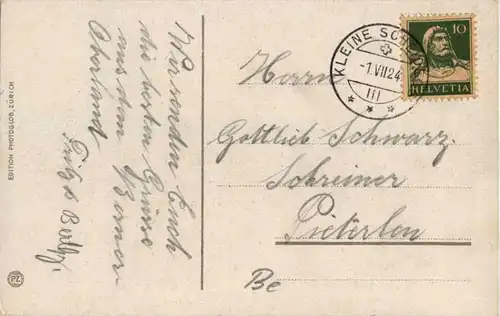 Wir senden Euch
die besten Grüsse
aus dem Berner-
Oberland
Fritz & Berthy.
Herrn
Gottlieb Schwarz.
Schreiner
Pieterlen
Be
KLEINE SCHEID
-1.VII.24
III
10
HELVETIA
EDITION PHOTOGLOB, ZÜRICH
PZ